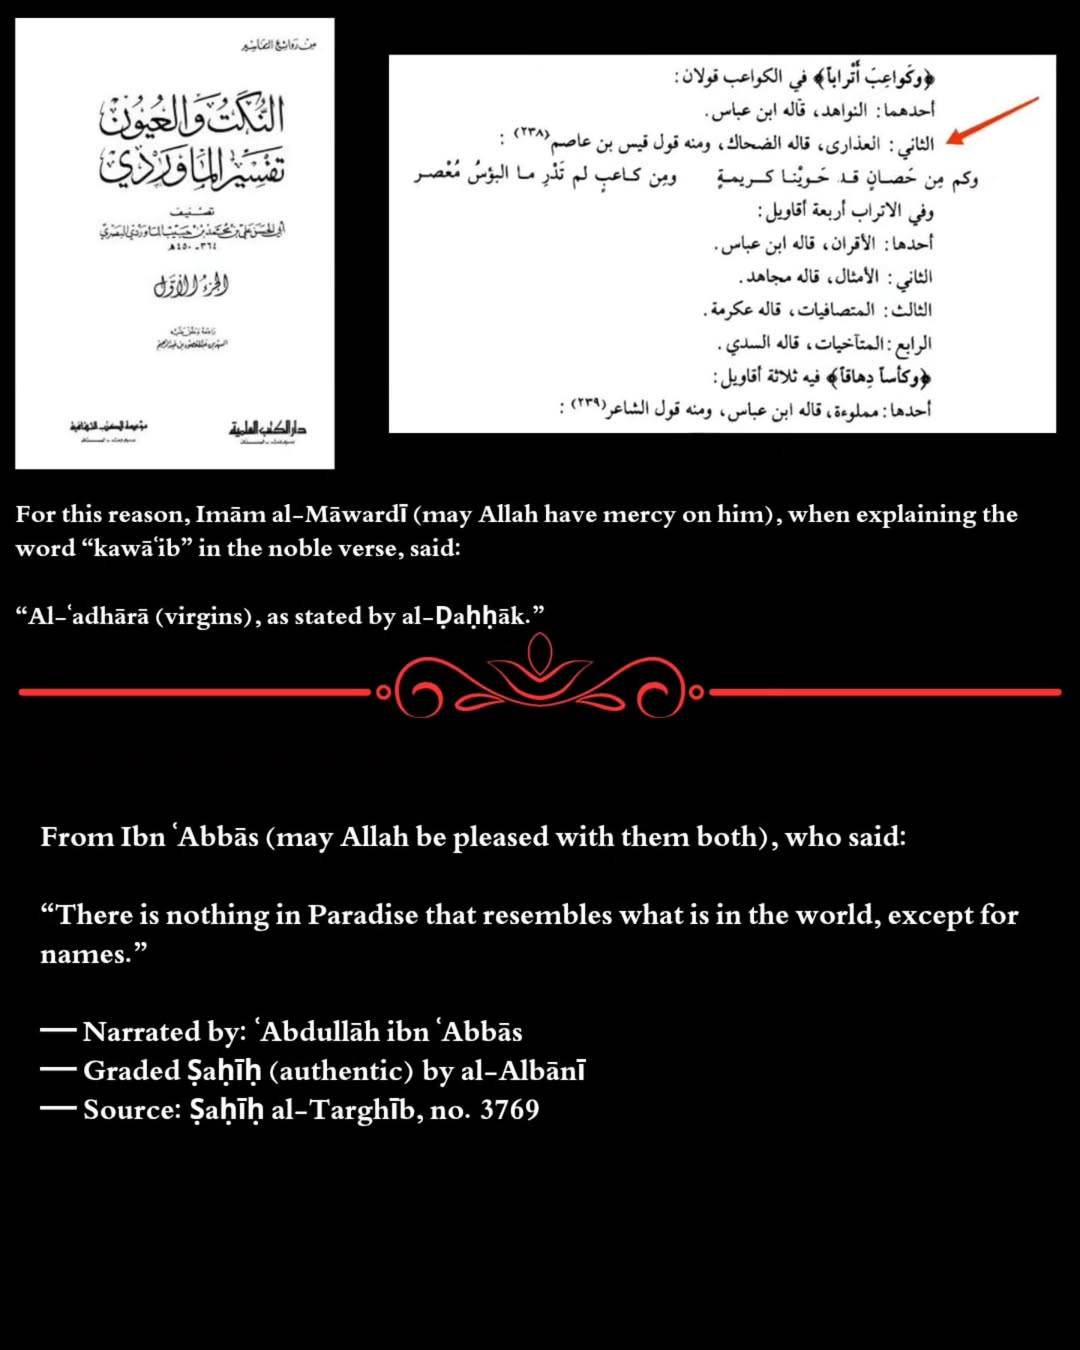 من روائع التفاسير
النُّكَتُ وَالعُيُونُ
تفسير الماوردي
تصنيف
أبي الحسن علي بن محمد بن حبيب الماوردي البصري
٣٦٤ - ٤٥٠ هـ
الجزء الأول
راجعه وعلق عليه
السيد بن عبد المقصود بن عبد الرحيم
دار الكتب العلمية
بيروت - لبنان
مؤسسة الكتب الثقافية
بيروت - لبنان
﴿وكَواعِبَ أَتْراباً﴾ في الكواعب قولان:
أحدهما: النواهد، قاله ابن عباس.
الثاني: العذارى، قاله الضحاك، ومنه قول قيس بن عاصم(٢٣٨):
وكم مِن حَصانٍ قد حَويْنا كريمةٍ ومِن كاعبٍ لم تَدْرِ ما البؤسُ مُعْصر
وفي الاتراب أربعة أقاويل:
أحدها: الأقران، قاله ابن عباس.
الثاني: الأمثال، قاله مجاهد.
الثالث: المتصافيات، قاله عكرمة.
الرابع: المتآخيات، قاله السدي.
﴿وكأساً دِهاقاً﴾ فيه ثلاثة أقاويل:
أحدها: مملوءة، قاله ابن عباس، ومنه قول الشاعر(٢٣٩):
For this reason, Imām al-Māwardī (may Allah have mercy on him), when explaining the
word “kawāʿib” in the noble verse, said:
“Al-ʿadhārā (virgins), as stated by al-Ḍaḥḥāk.”
From Ibn ʿAbbās (may Allah be pleased with them both), who said:
“There is nothing in Paradise that resembles what is in the world, except for
names.”
— Narrated by: ʿAbdullāh ibn ʿAbbās
— Graded Ṣaḥīḥ (authentic) by al-Albānī
— Source: Ṣaḥīḥ al-Targhīb, no. 3769